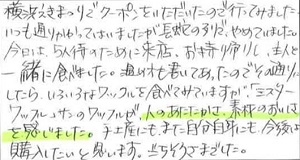 横浜さきまつりでクーポンをいただいたので行ってみました。
いつも通りかかってはいましたが"長蛇の列"で、やめていました。
今日は、5人待のために来店、お持ち帰りし、主人と
一緒に食べました。過め方も書いてあったのでその通り
したら、いろいろなワックルを食べてみていますが"ミスター
ワッフル"さんのワッフルが、人のあたたかさ、素材のおいしさ
を感じました。手土産にも、また自分自身にも、今後は
購入したいと思います。ごちそうさまでした。